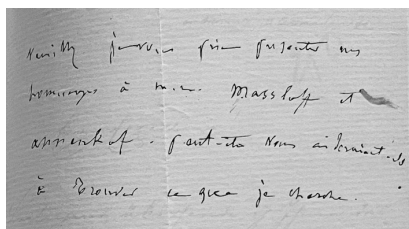 Veuillez je vous prie présenter mes
hommages à M. M. Massloff et
peut-être nous aideraient-ils
à trouver ce que je cherche.